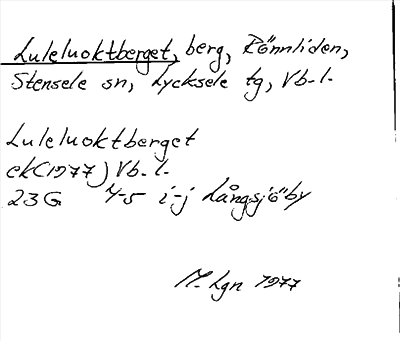 Luleluoktberget, berg, Rönnliden,
Stensele sn, Lycksele tg, Vb-l.
Luleluoktberget
ek(1977) Vb-l-
23G 4-5 i-j Långsjöby
M. Lgn 1977